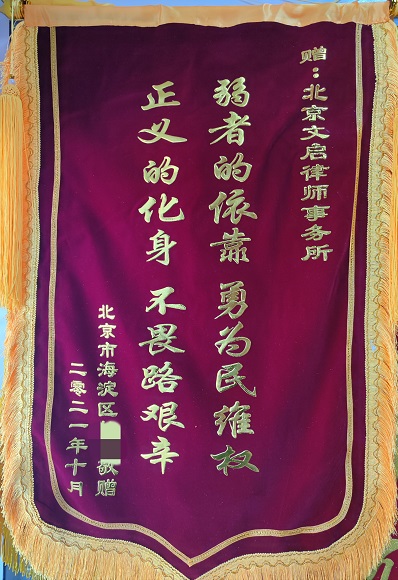 赠：北京文启律师事务所
弱者的依靠 勇为民维权
正义的化身 不畏路艰辛
北京市海淀区 敬赠
二零二一年十月